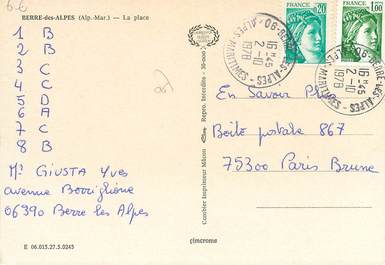 BERRE-des-ALPES (Alp.-Mar.) — La place
1 B
2 B
3 C
4 C
5 D
6 A
7 C
8 B
Mr GIUSTA Yves
avenue Borriglione
06390 Berre les Alpes
E 06.015.27.5.0245
çimcrome
Combier Imprimeur Mâcon
Repro. Interdite - 30-000
0,20
1,00
16H45
2-10
1978
06-BERRE-LES-ALPES-
ALPES-MARITIMES
16H45
2-10
1978
En Savoir Plus
Boîte postale 867
75300 Paris Brune